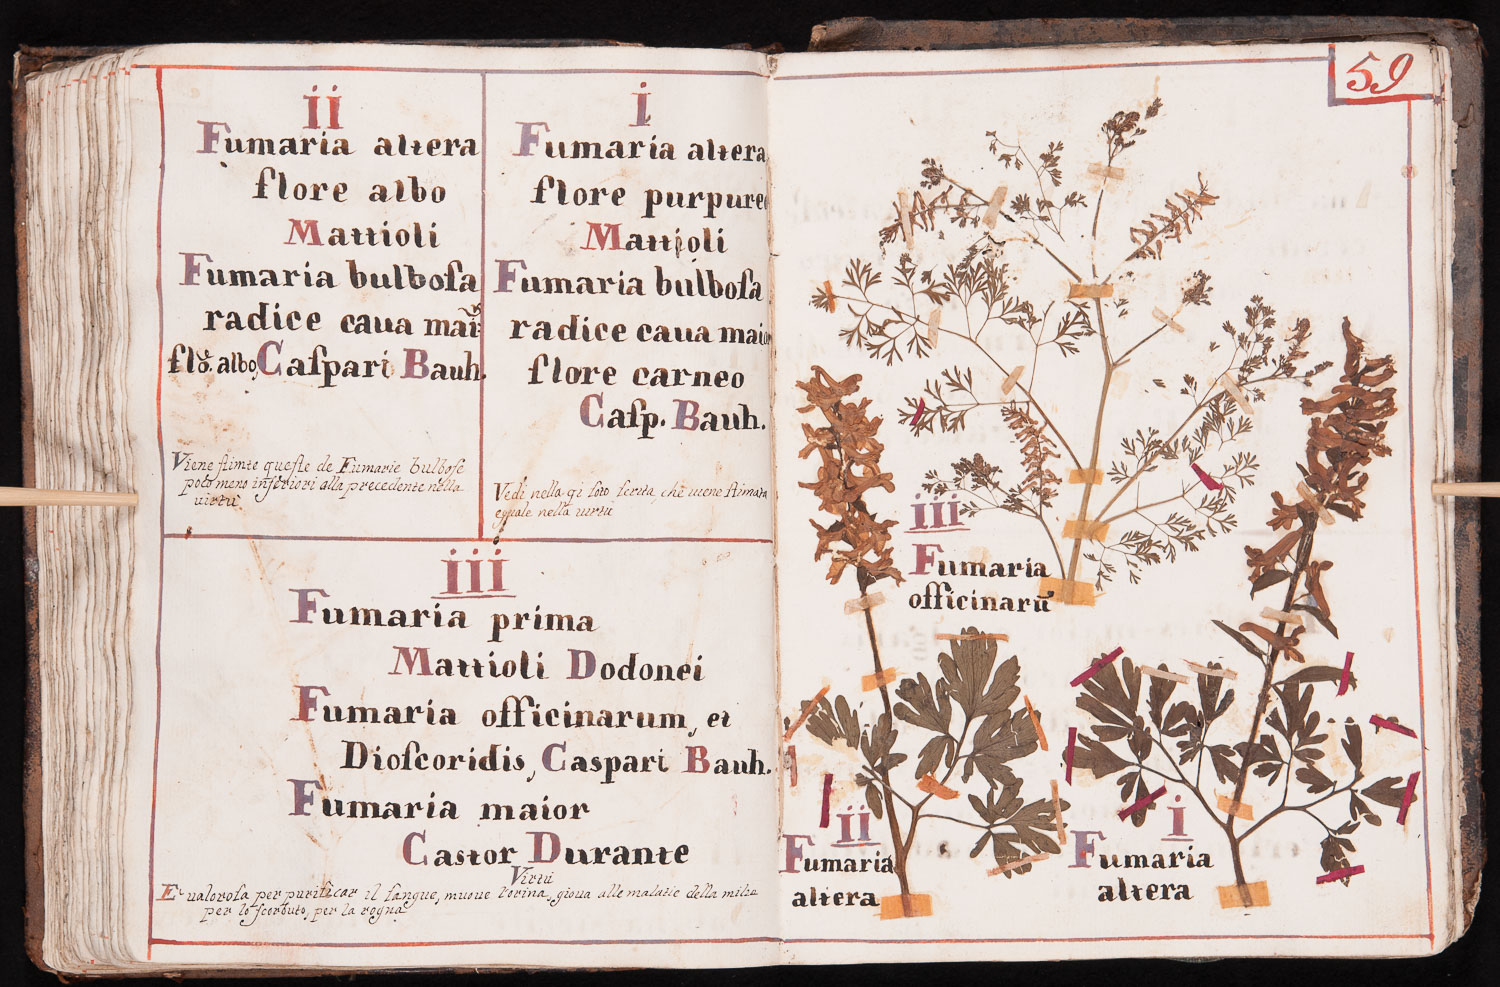 ii
Fumaria altera
flore albo
Mattioli
Fumaria bulboſa
radice caua mai͂r
flo͂. albo, Caſpari Bauh.
Viene ſtimte queſte de Fumarie bulboſe
poco meno inferiori alla precedente nella
uirtù
i
Fumaria altera
flore purpureo
Mattioli
Fumaria bulboſa
radice caua maior
flore carneo
Caſp. Bauh.
Vedi nella qi ſoto ſerita, che uiene ſtimata
eguale nella uirtù
iii
Fumaria prima
Mattioli Dodonei
Fumaria officinarum, et
Dioſcoridis, Caspari Bauh.
Fumaria maior
Castor Durante
Virtù
E' ualoroſa per purificar il ſangue, muoue l'orina, gioua alle malatie della milza
per lo ſcorbuto, per la rogna
59
iii
Fumaria
officinaru͂
ii
Fumaria
altera
i
Fumaria
altera